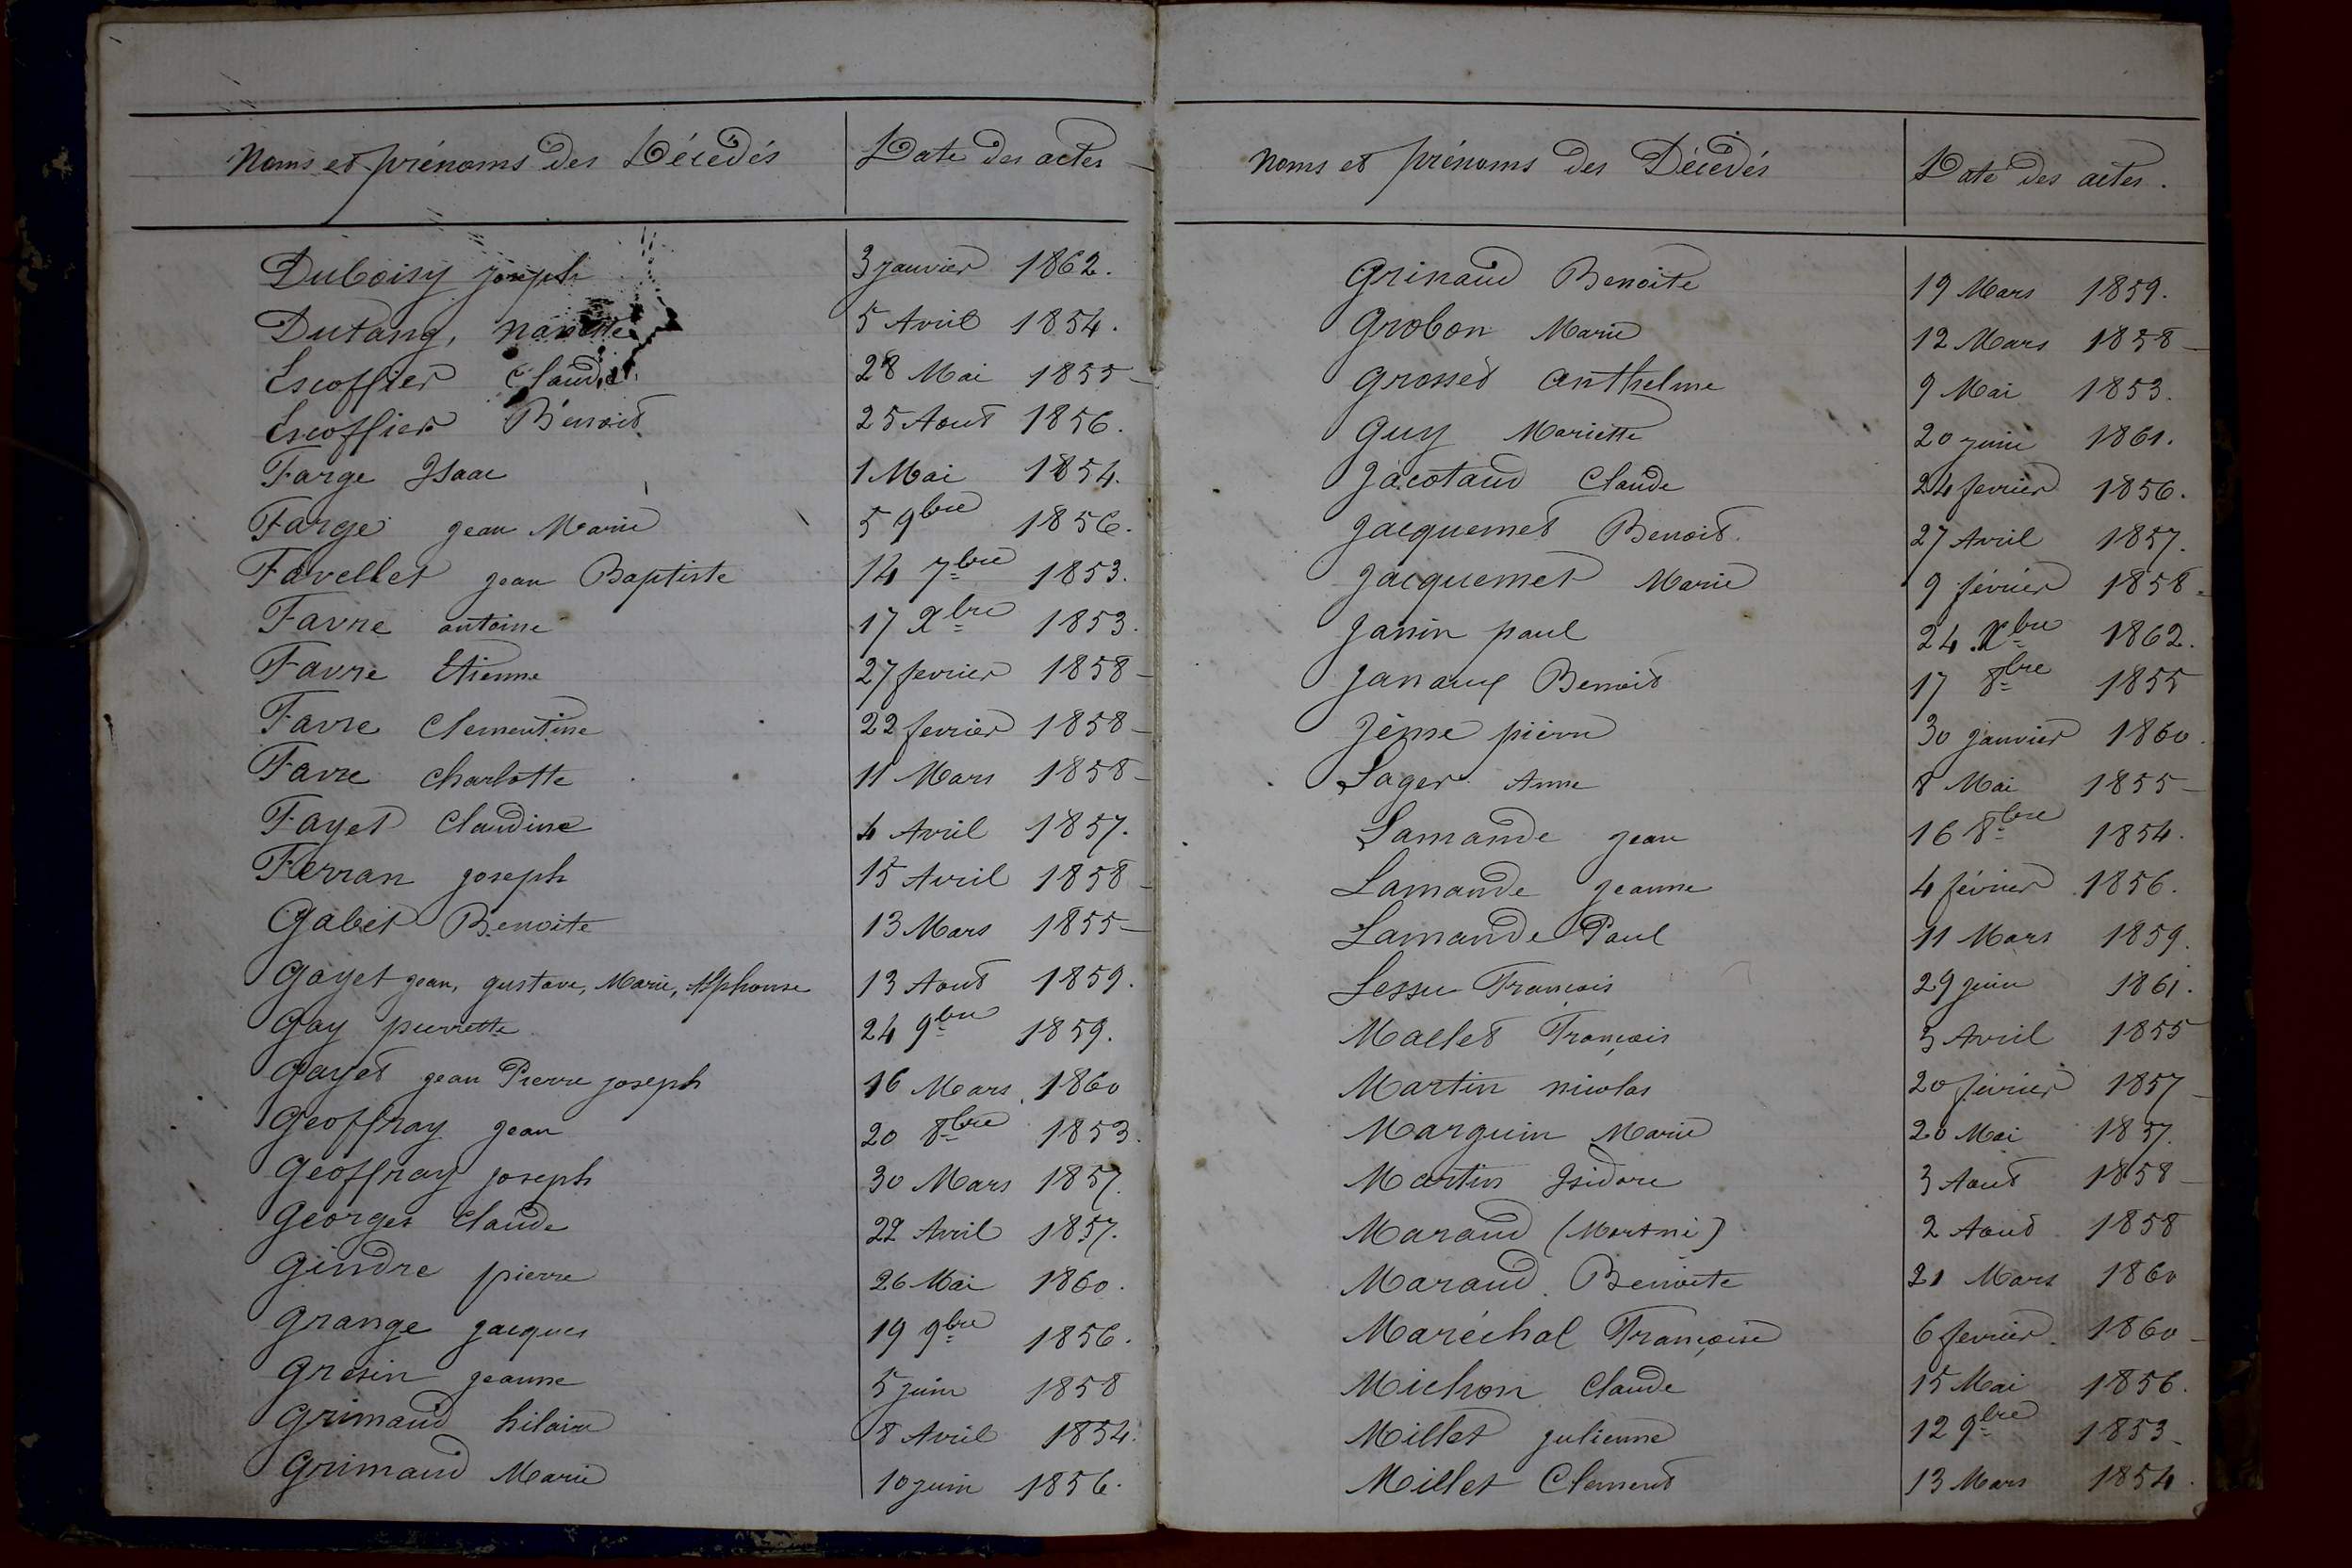 Noms et prénoms des Décédés Date des actes
Duboisy joseph 3 janvier 1862.
Dutang, nanette 5 Avril 1854.
Escoffier Claude 28 Mai 1855
Escoffier Benoit 25 Aout 1856.
Farge Isaac 1 Mai 1854.
Farge jean Marie 5 9bre 1856.
Favellet jean Baptiste 14 7bre 1853.
Favre antoine 17 Xbre 1853.
Favre Etienne 27 fevrier 1858
Favre Clementine 22 fevrier 1858
Favre charlotte 11 Mars 1858
Fayet Claudine 4 Avril 1857.
Ferran joseph 15 Avril 1858
Gabet Benoite 13 Mars 1855
Gayet jean, gustave, Marie, Alphonse 13 Aout 1859.
Gay pierrette 24 9bre 1859.
Gayet jean Pierre joseph 16 Mars 1860
Geoffray jean 20 8bre 1853.
Geoffray joseph 30 Mars 1857.
Georges Claude 22 Avril 1857.
Gindre pierre 26 Mai 1860.
Grange jacques 19 9bre 1856.
Gresin jeanne 5 juin 1858
Grimaud hilaire 8 Avril 1854.
Grimaud Marie 10 juin 1856.
Noms et prénoms des Décédés Date des actes.
Grinaud Benoite 19 Mars 1859.
Grobon Marie 12 Mars 1858
Grosset anthelme 9 Mai 1853.
Guy Mariette 20 juin 1861.
Jacotaud Claude 24 fevrier 1856.
Jacquemet Benoit. 27 Avril 1857.
Jacquemet Marie 9 février 1858.
Janin paul 24 Xbre 1862.
Janaux Benoit 17 8bre 1855
Jême pierre 30 janvier 1860.
Lager Anne 8 Mai 1855
Lamande jean 16 8bre 1854.
Lamande jeanne 4 février 1856.
Lamande Paul 11 Mars 1859.
Lessu Francois 29 juin 1861.
Mallet François 3 Avril 1855
Martin nicolas 20 février 1857
Marguin Marie 20 Mai 1857.
Martin Isidore 3 Aout 1858
Maraud (Mort né) 2 Aout 1858
Maraud Benoite 21 Mars 1860
Maréchal Françoise 6 fevrier 1860
Michon Claude 15 Mai 1856.
Millet julienne 12 9bre 1853
Millet Clement 13 Mars 1854.